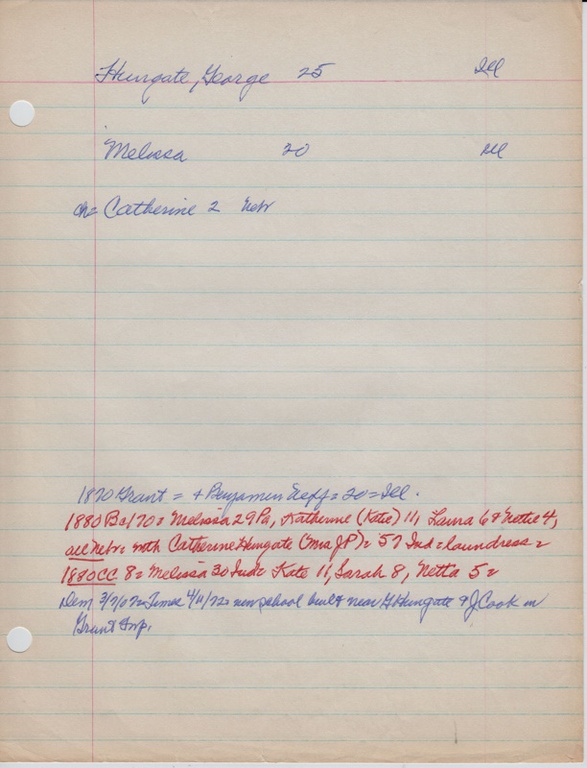 Hungate, George 25 Ill
Melissa 20 Ill
ch= Catherine 2 Nebr
1870 Grant = + Benjamin = 20 = Ill.
1880 B2170= Melissa 29 Pa, Katherine (Katie) 11, Laura 6 & Nettie 4,
all Nebr= with Catherine Hungate (Mrs J P)= 57 Ind = laundress =
1880CC 8= Melissa 30 Ind= Kate 11, Sarah 8, Netta 5=
Dem 3/7/07= Times 4/11/72= new school built near G Hungate & J Cook in
Grant Twp.